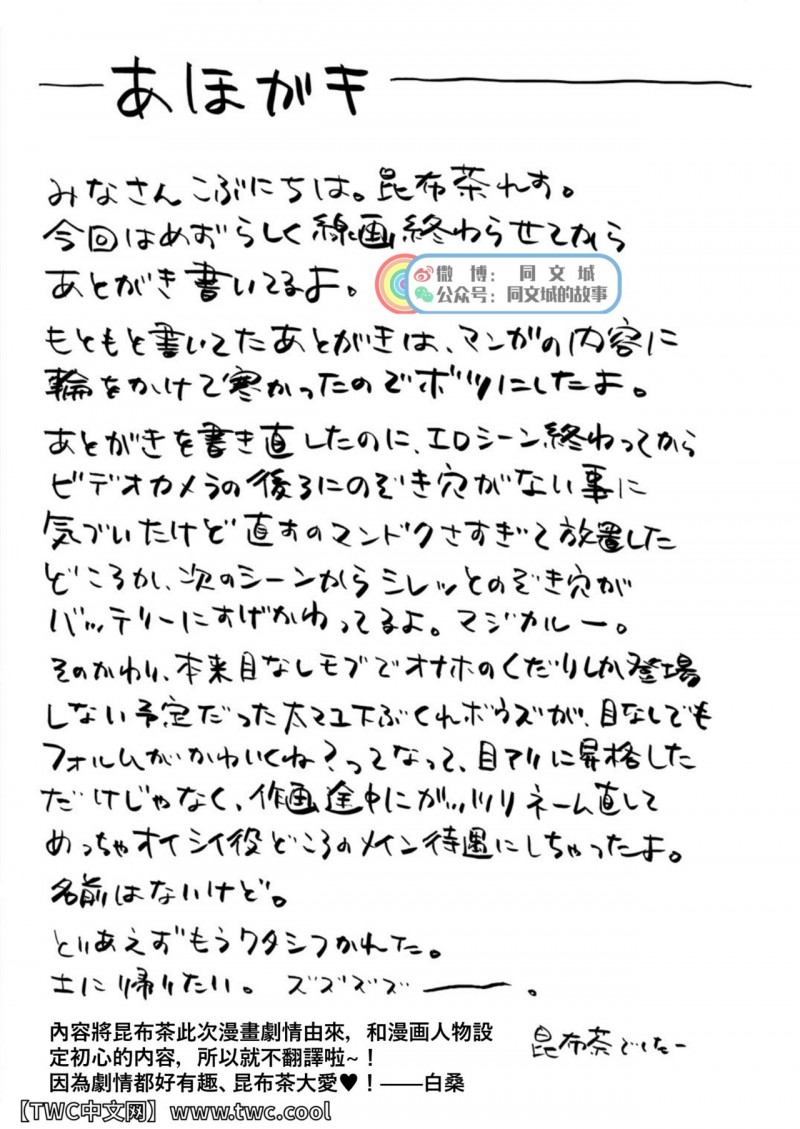 あほがキ
みなさんこぶにちは。昆布茶れす。
今回はめずらしく線画終わらせてから
あとがき書いてるよ。
微博：同文城
公众号：同文城的故事
もともと書いてたあとがきは、マンガの内容に
輪をかけて寒かったのでボツにしたよ。
あとがきを書き直したのに、エロシーン終わってから
ビデオカメラの後ろにのぞき穴がない事に
気づいたけど直すのマンドクさすぎて放置した
どころか、次のシーンからシレッとのぞき穴が
バッテリーにすげかわってるよ。マジカルー。
そのかわり、本来目なしモブでオナホのくだりしか登場
しない予定だった太マユ下ぶくれボウズが、目なしでも
フォルムがかわいくね？ってなって、目アリに昇格した
だけじゃなく、作画途中にガッツリネーム直して
めっちゃオイシイ役どころのメイン待遇にしちゃったよ。
名前はないけど。
とりあえずもうワタシつかれた。
土に帰りたい。ズズズズ――。
昆布茶でしたー
內容將昆布茶此次漫畫劇情由來，和漫画人物設
定初心的内容，所以就不翻譯啦~！
因為劇情都好有趣、昆布茶大愛♥！——白桑
【TWC中文网】www.twc.cool